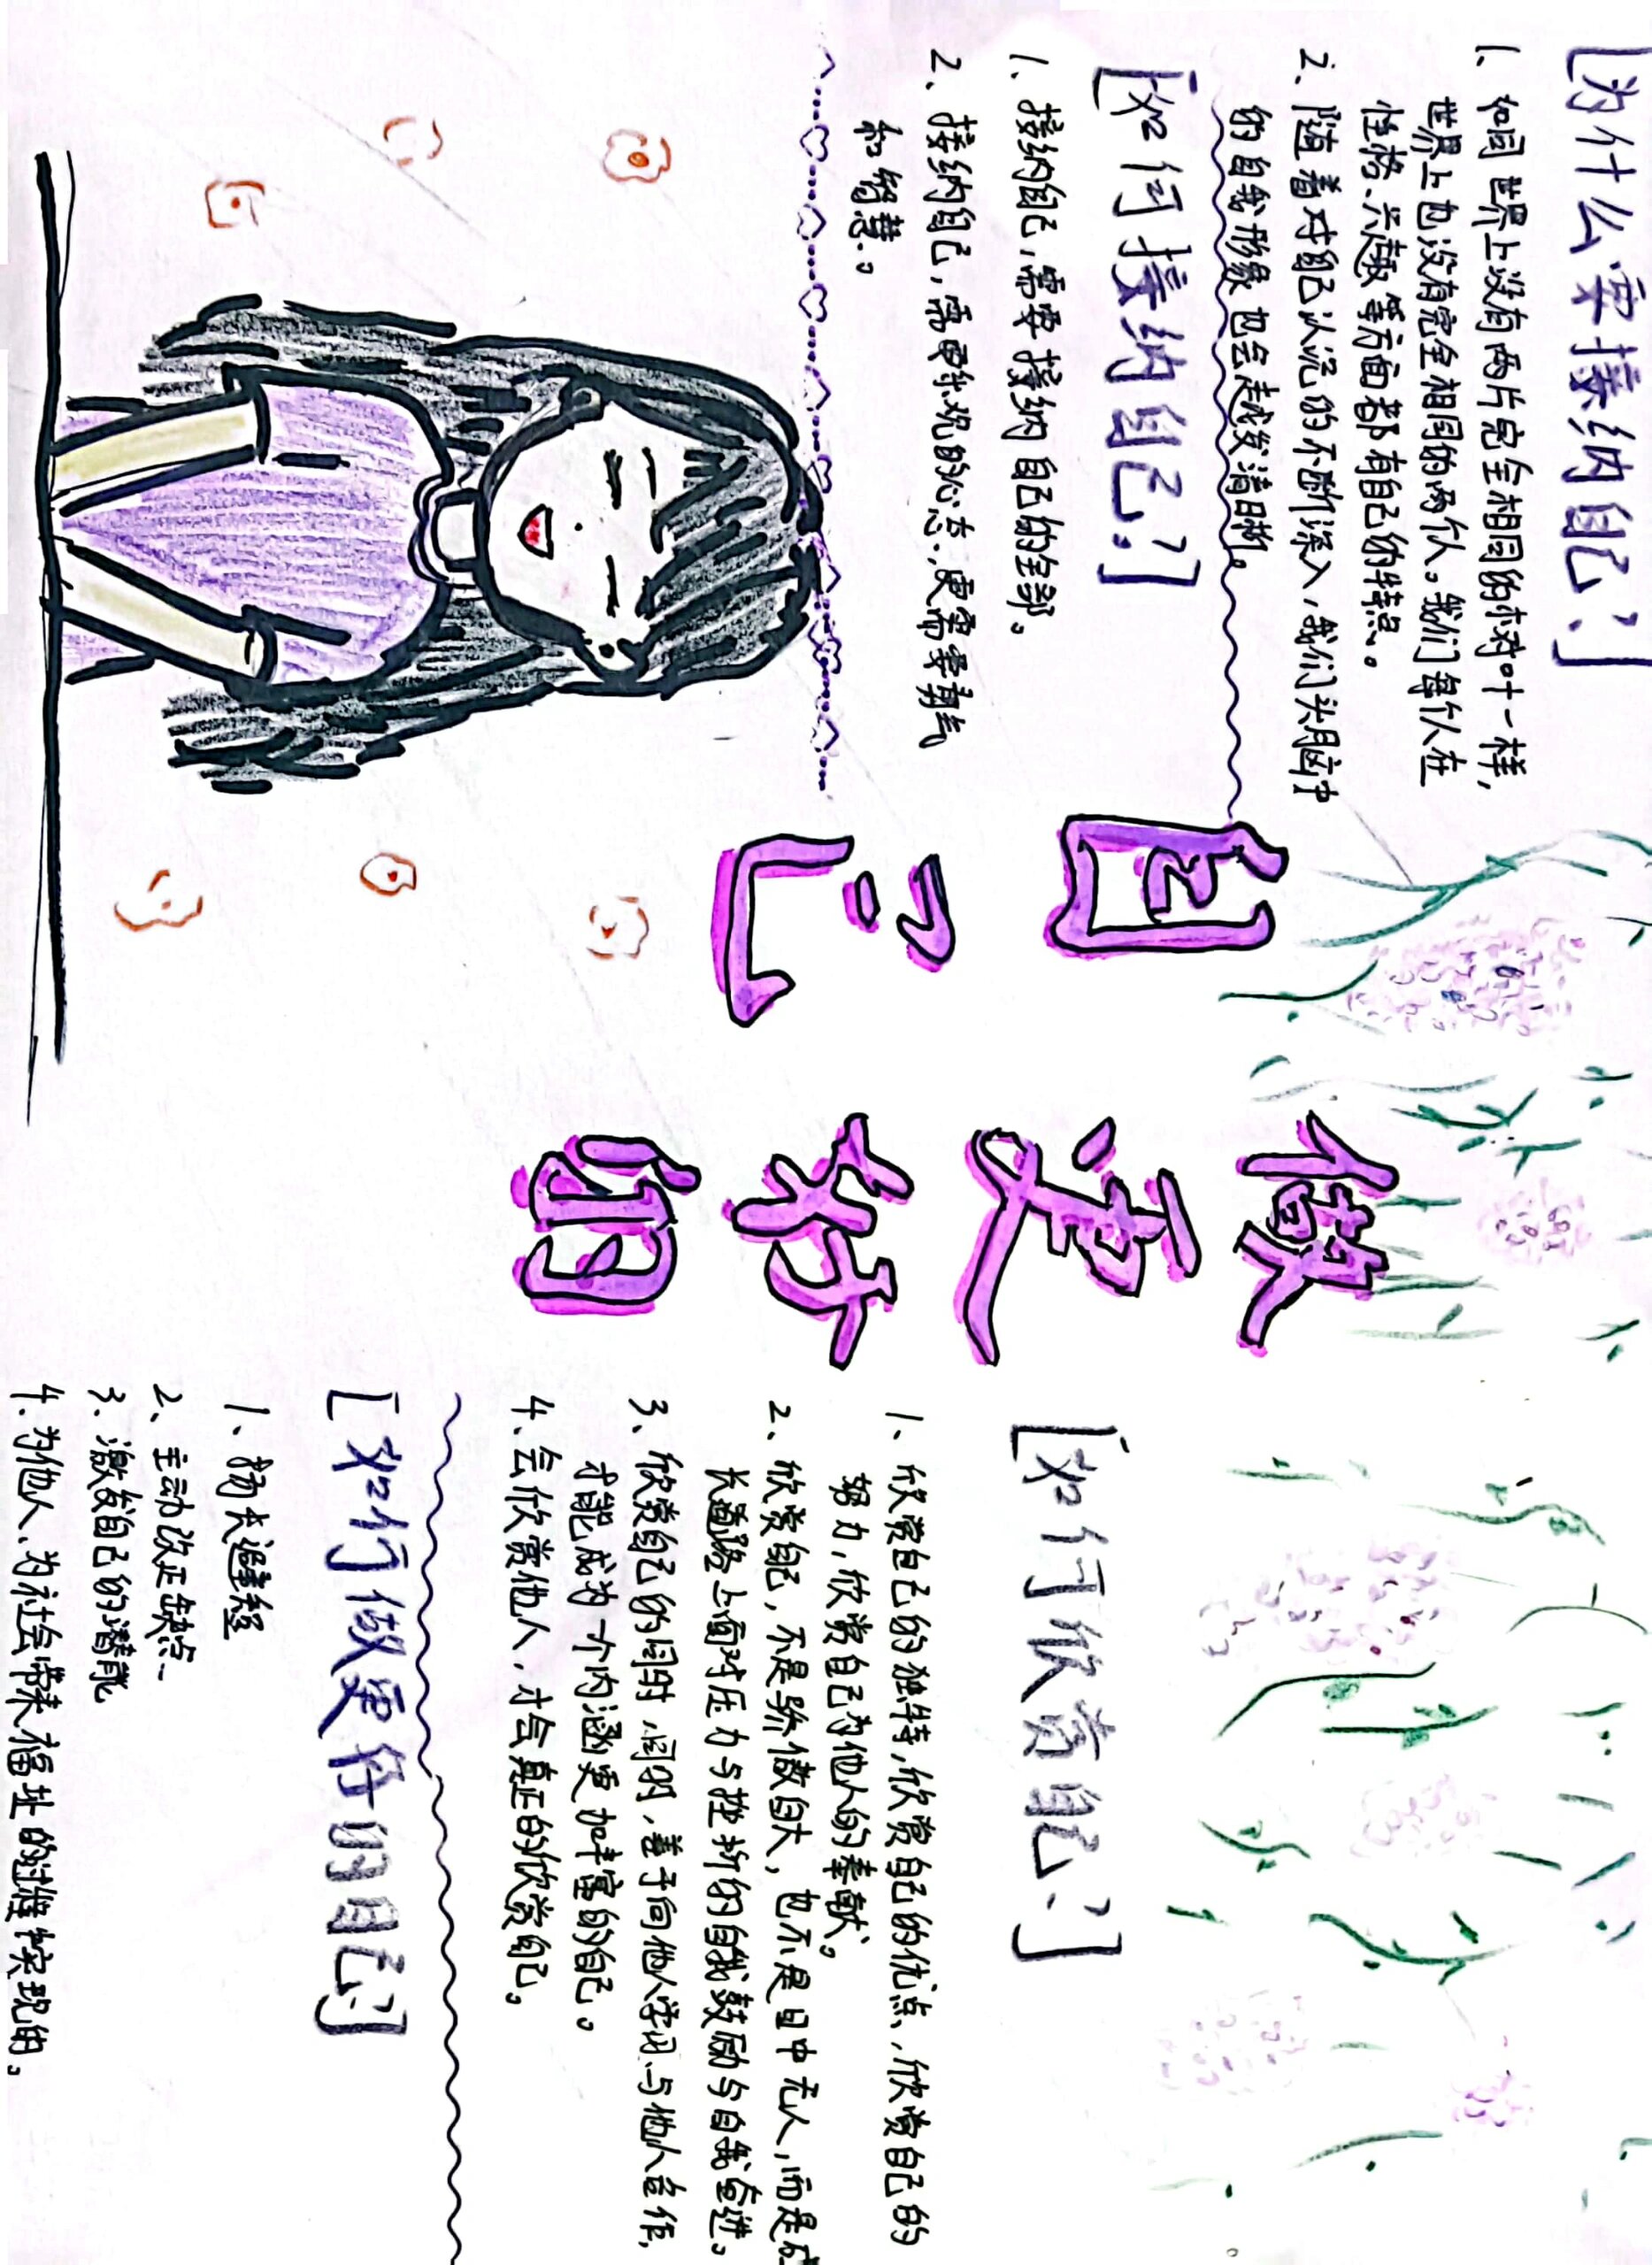 [为什么要接纳自己?]
1、如同世界上没有两片完全相同的树叶一样,
世界上也没有完全相同的两个人。我们每个人在
性格、兴趣等方面都有自己的特点。
2、随着对自己认识的不断深入,我们头脑中
的自我形象也会越发清晰。
[如何接纳自己?]
1、接纳自己,需要接纳自己的全部。
2、接纳自己,需要乐观的心态,更需要勇气
和智慧。
做更好的
自己
[如何欣赏自己?]
1、欣赏自己的独特,欣赏自己的优点、欣赏自己的
努力,欣赏自己为他人的奉献。
2、欣赏自己,不是骄傲自大,也不是目中无人,而是成
长道路上面对压力与挫折的自我鼓励与自我奋进。
3、欣赏自己的同时,善于向他人学习、与他人合作,
才能成为一个内涵更加丰富的自己。
4、会欣赏他人,才会真正的欣赏自己。
[如何做更好的自己?]
1、扬长避短
2、主动改正缺点
3、激发自己的潜能
4、为他人、为社会带来福址的过程中实现的。